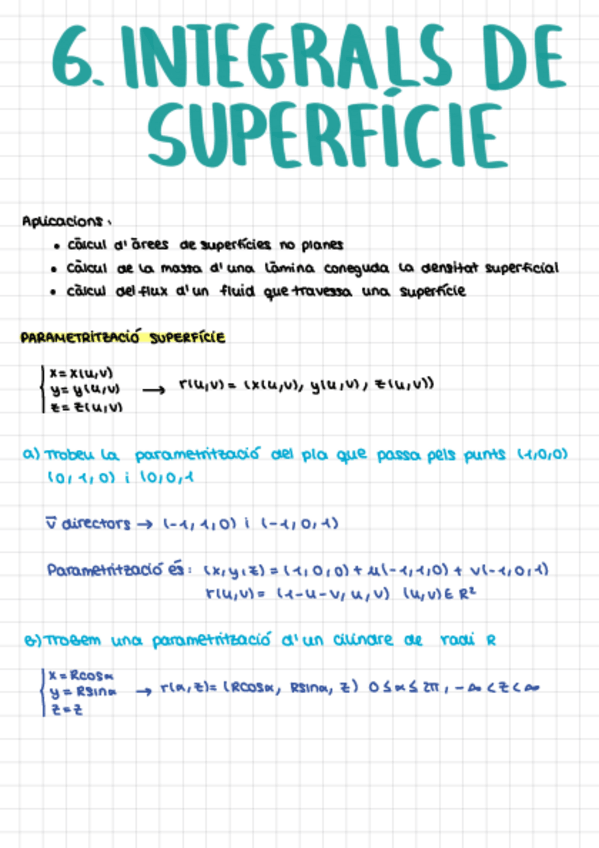 6. INTEGRALS DE
SUPERFÍCIE
Aplicacions.
• càlcul d'àrees de superfícies no planes
• càlcul de la massa d'una làmina coneguda la densitat superficial
• càlcul del flux d'un fluid que travessa una superfície
PARAMETRITZACIÓ SUPERFÍCIE
x = x(u,v)
y = y(u,v) → r(u,v) = (x(u,v), y(u,v), z(u,v))
z = z(u,v)
a) Trobeu la parametrització del pla que passa pels punts (1,0,0)
(0,1,0) i (0,0,1
v̄ directors → (-1,1,0) i (-1,0,1)
Parametrització és: (x,y,z) = (1,0,0) + u(-1,1,0) + v(-1,0,1)
r(u,v) = (1-u-v, u, v) (u,v) ∈ R²
b) Trobem una parametrització d'un cilindre de radi R
x = Rcosα
y = Rsinα → r(α,z) = (Rcosα, Rsinα, z) 0 ≤ α ≤ 2π, -∞ < z < ∞
z = z